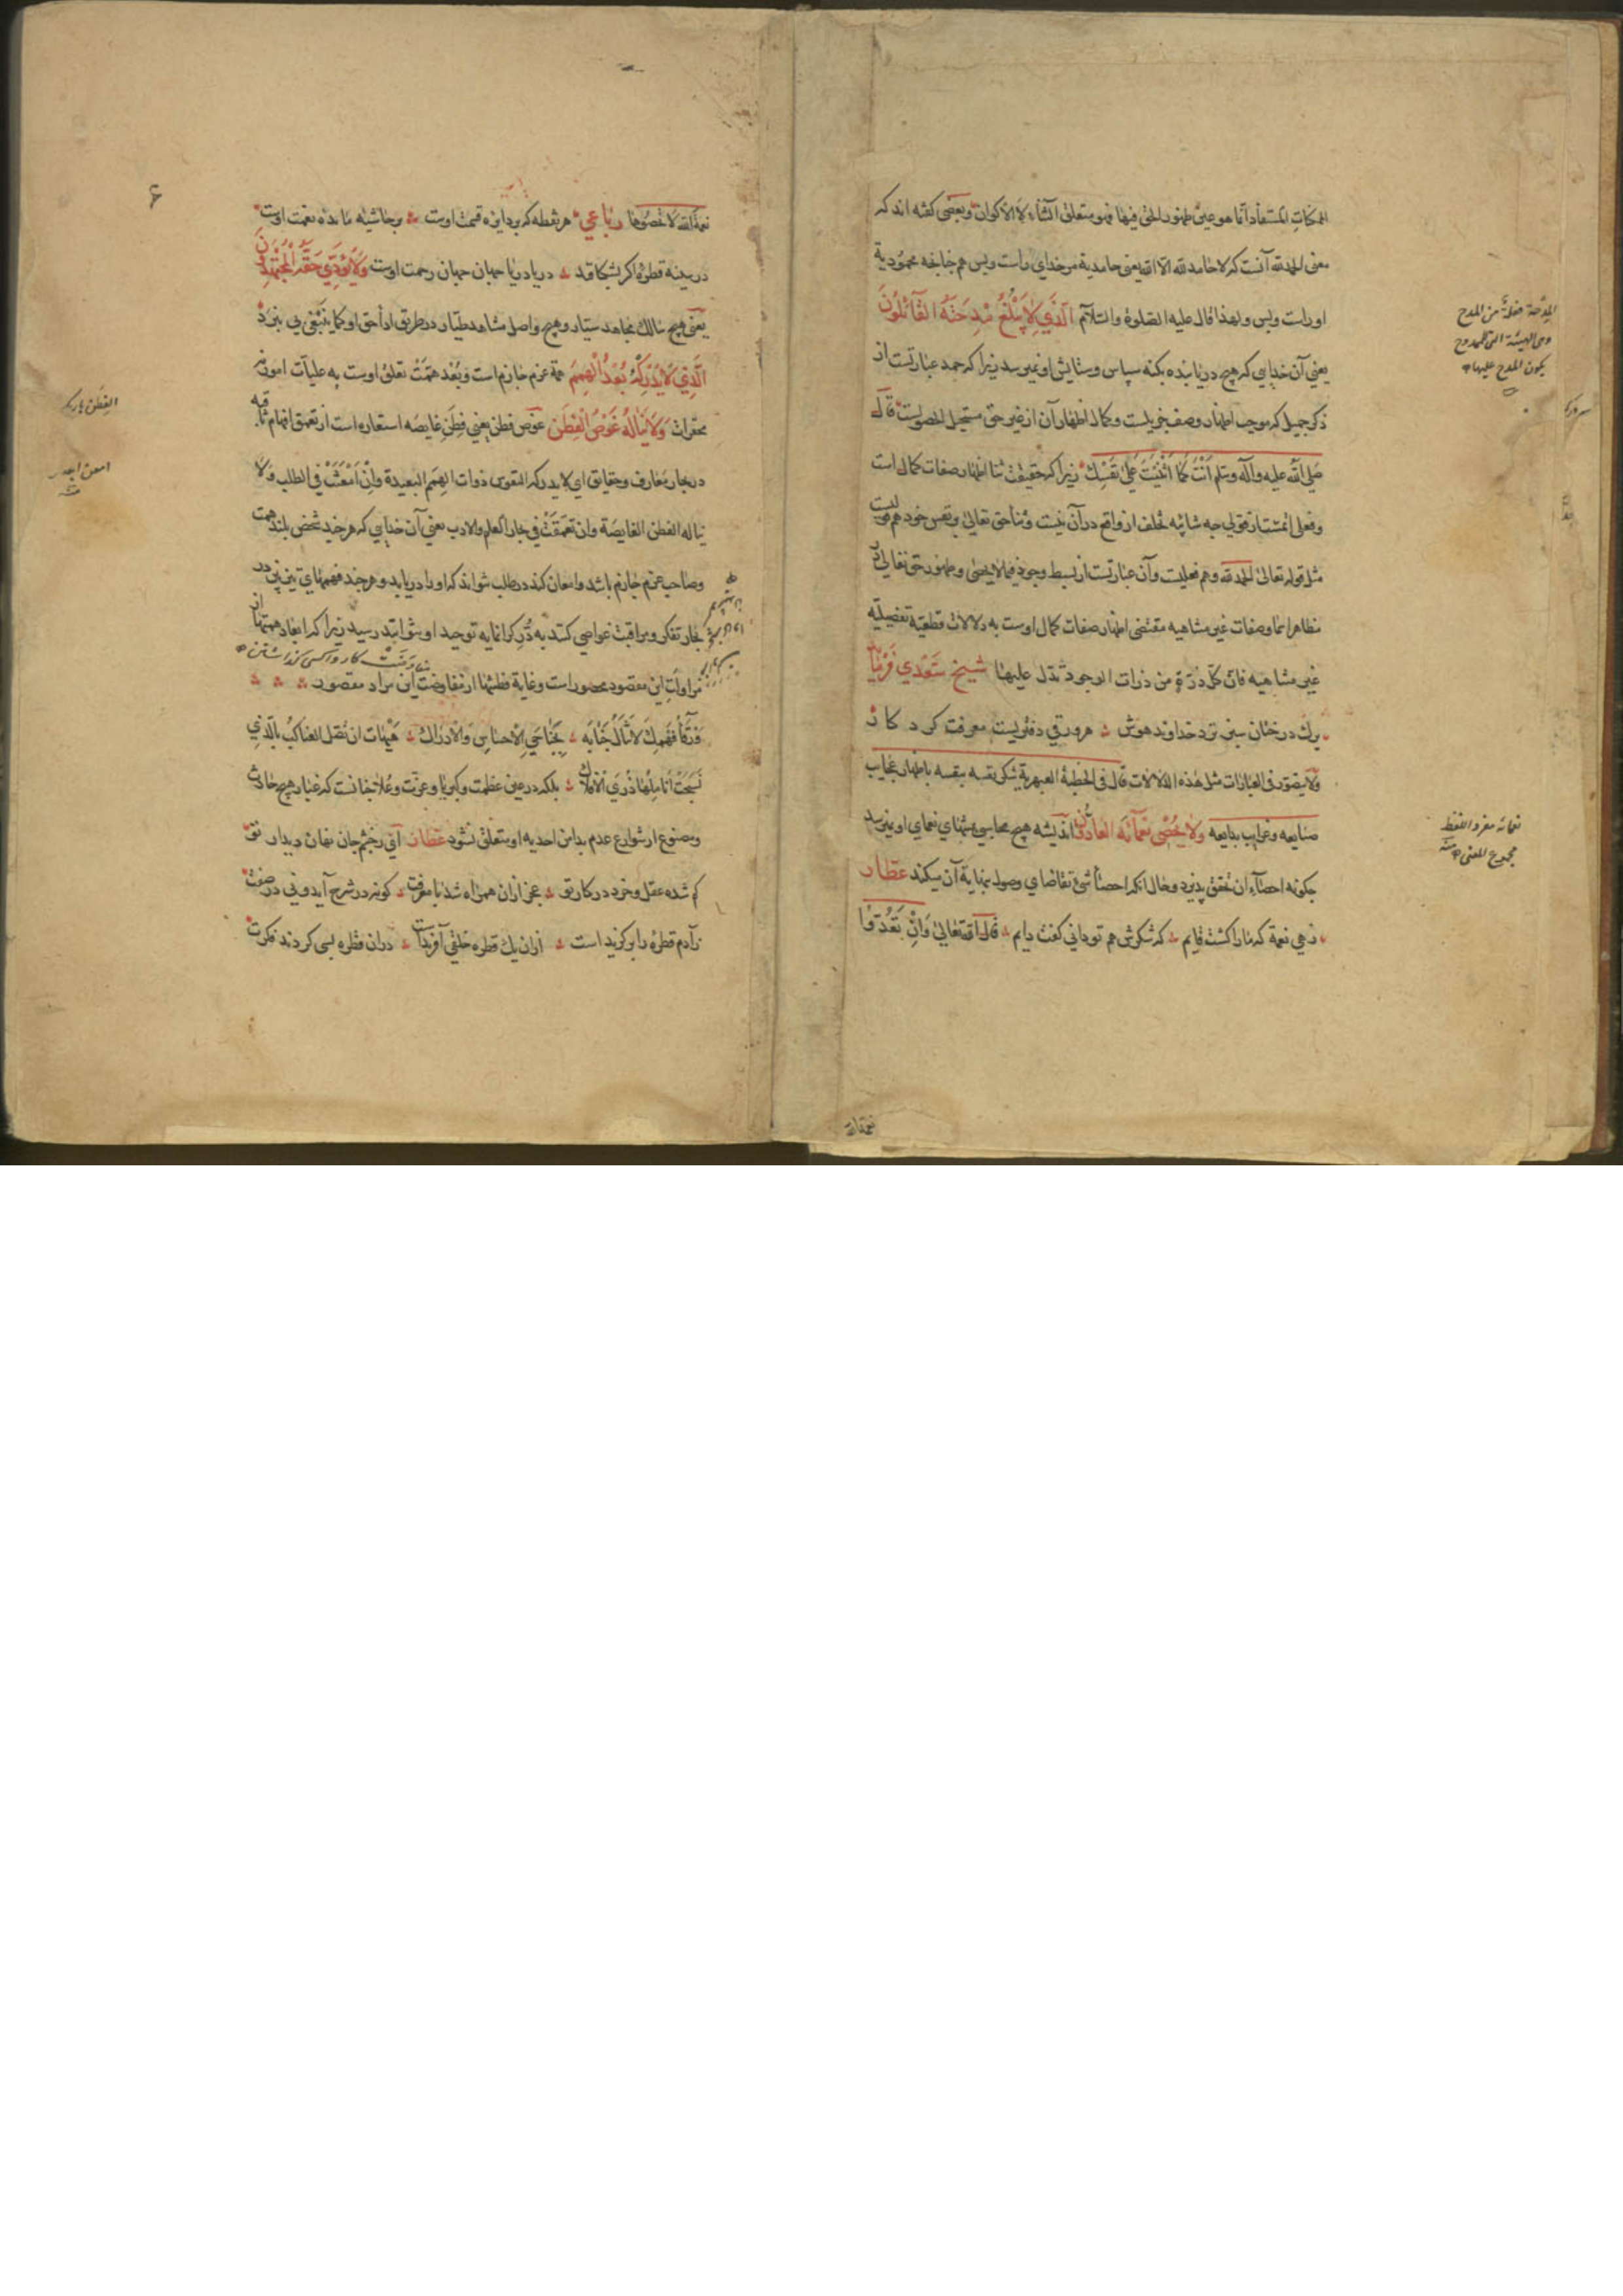 الممكنات المستفاد انما هو عين ظهور الحق فيها فهو متعلق الثناء لا الاكوان وبعضی گفته اند که
معنی الحمد لله آنست که لا حامد لله الا الله یعنی حامدیة مر خدای راست و بس هم چنانچه محمودیة
اوراست و بس ولهذا قال علیه الصلوة والسلام الَّذِي لَا يَبْلُغُ مِدْحَتَهُ الْقَائِلُونَ
یعنی آن خدایی که هیچ دریابنده بکنه سپاس و ستایش او نمیرسد زیرا که حمد عبارتست از
ذکر جمیل که موجب اظهار وصف خیریست و کمال اظهار آن از غیر حق مستحیل الحصولیست قال
صلی الله علیه وآله وسلم اَنْتَ كَمَا اَثْنَيْتَ عَلَى نَفْسِكَ زیرا که حقیقت ثنا اظهار صفات کمال است
وفعلی از قولی چه شائبه تخلف از واقع در آن نیست وثنا حق تعالی بر نفس خود هم قولیست
مثل قوله تعالی الحمد لله وهم فعلیست وآن عبارتست از بسط وجود فیما لا یحصی وظهور حق تعالی در
مظاهر اسما وصفات غیر متناهیه مقتضی اظهار صفات کمال اوست به دلالات قطعیه تفضیلیه
غیر متناهیه فان کل ذرة من ذرات الوجود تدل علیها شیخ سعدی فرماید
برگ درختان سبز نزد خداوند هوش هر ورقی دفتریست معرفت کردکار
ولا یتصور فی العبارات مثل هذه الدلالات قال فی الخطبة یشکر نفسه بنفسه باظهار عجایب
صنایعه وغرایب بدایعه وَلَا يُحْصِي نَعْمَائَهُ الْعَادُّونَ اندیشه هیچ محاسبی بمنتهای نعمای او نمیرسد
چگونه احصاء آن تحقق پذیرد وحال انکه احصاء شئ تقاضای وصول بنهایة آن میکند عطار
زهی نعمة که مارا گشت قایم که شکرش هم تو دانی گفت دایم قال الله تعالی وَاِنْ تَعُدُّوا
المدحة فعلة من المدح
وهی الهیئة التی للممدوح
یکون المدح علیها
نعمائه مفرد اللفظ
مجموع المعنی منه
نعمة الله
نعمة الله لا تحصوها رباعی هر نقطه که بر دایره قسمت اوست بر حاشیه مائده نعمت اوست
در سینه قطره اگر بشکافند دریا دریا جهان جهان رحمت اوست وَلَا يُؤَدِّي حَقَّهُ الْمُجْتَهِدُونَ
یعنی هیچ سالک مجاهد سیار وهیچ واصل مشاهد طیار در طریق اداء حق او کما ینبغی پی نبرد
الَّذِي لَا يُدْرِكُهُ بُعْدُ الْهِمَمِ همة عزم جازم است وبُعد همّت تعلق اوست به علیات امور نه
محقرات وَلَا يَنَالُهُ غَوْصُ الْفِطَنِ غوص فطن یعنی فطن غایصه استعاره است از تعمق افهام ثاقبه
در بحار معارف وحقایق ای لا یدرکه النفوس ذوات الهمم البعیدة وان امعنت فی الطلب ولا
یناله الفطن الغایصة وان تعمقت فی بحار العلم والادب یعنی آن خدایی که هر چند شخص بلند همت
وصاحب عزم جازم باشد وامعان کند در طلب نتواند که اورا دریابد وهر چند فهمهای تیزبین در
بحار تفکر ومراقبت غواصی کنند به دُرّ گرانمایه توحید او نتوانند رسید زیرا که ابعاد همتها از
مراوات این مقصود محصور است وغایة فطنتها از مفاوضت این مراد مقصور
هَيْهَات ان تصل العناكب بالذي
نسجت اناملها ذرى الافلاك بلکه در عین عظمت وکبریا وعزت وعلا چنانست که غبار هیچ حادث
ومصنوع از شوارع عدم بدامن احدیه او متعلق نشود عطار ای ز چشم جان نهان دیدار تو
گم شده عقل وخرد در کار تو عجز ازان همراه شد با معرفت کو نه در شرح آید ونی در صفت
ز آدم قطره را برگزیداست ازان یک قطره خلقی آفریدست دران قطره بسی کردند فکرت